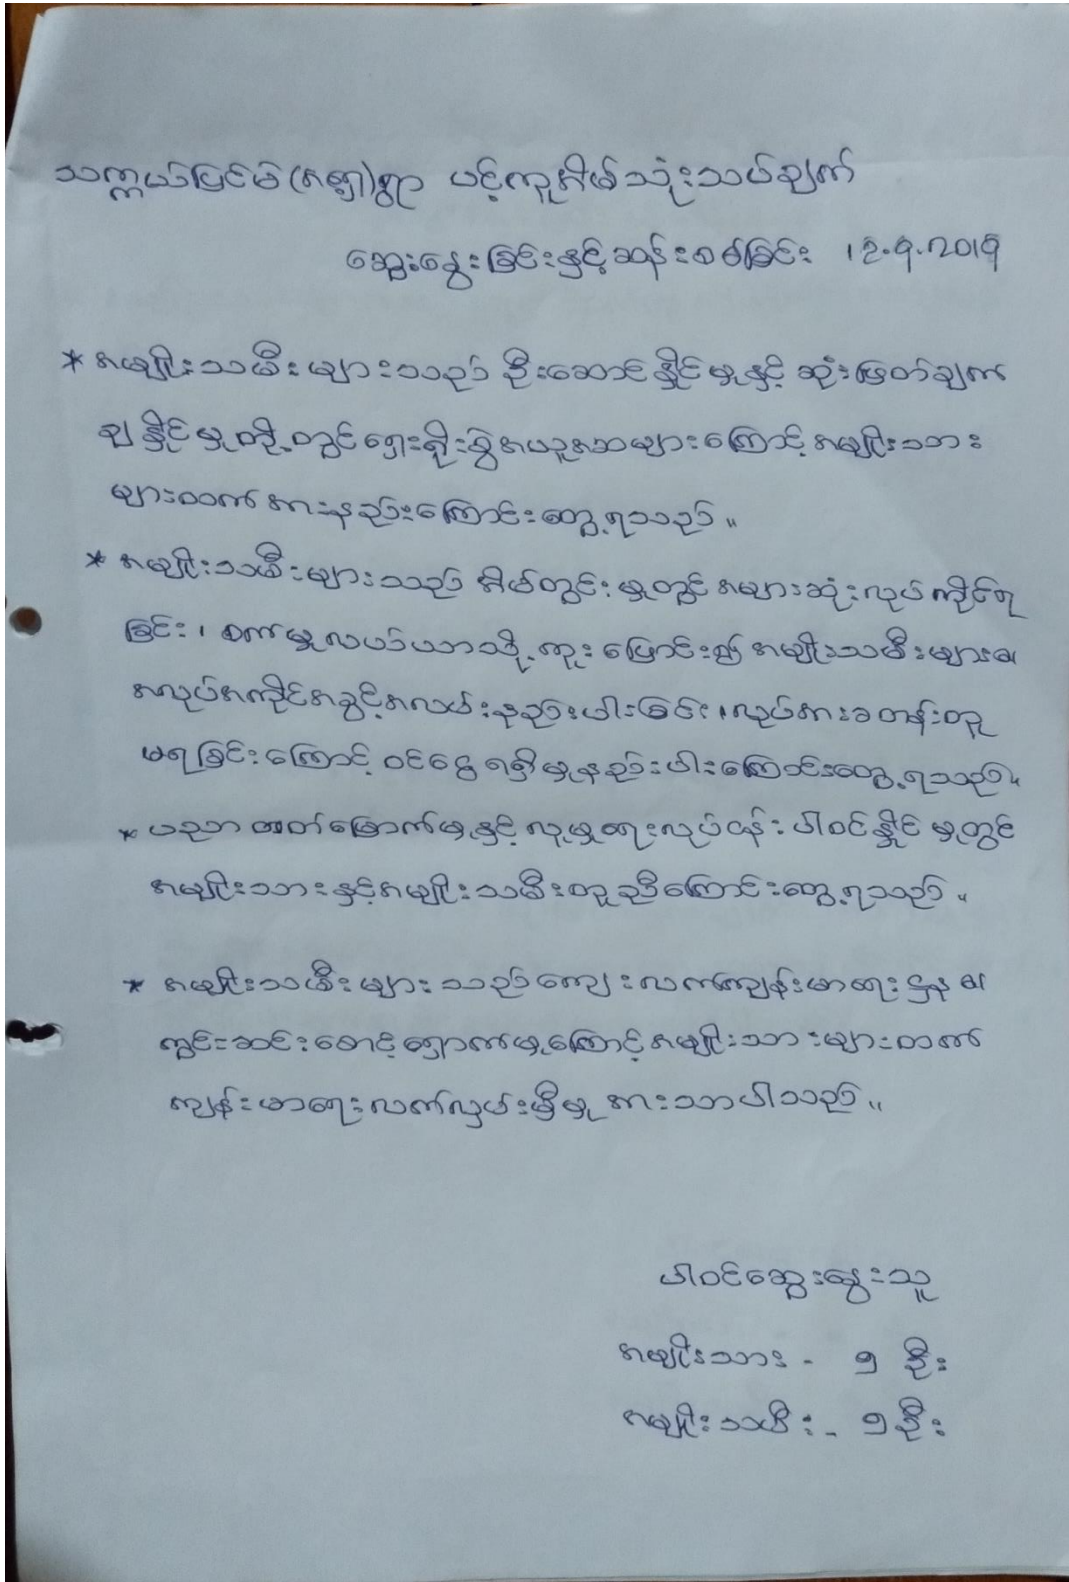 သက္ကယ်ပြင်မ(အရှေ့)ရွာ ပင့်ကူအိမ်သုံးသပ်ချက်
ဆွေးနွေးခြင်းနှင့်ဆန်းစစ်ခြင်း 12.9.2019
* အမျိုးသမီးများသည် ဦးဆောင်နိုင်မှုနှင့် ဆုံးဖြတ်ချက်
ချနိုင်မှုတို့တွင်ရှေးရိုးစွဲအယူအဆများကြောင့်အမျိုးသား
များထက်အားနည်းကြောင်းတွေ့ရသည်။
* အမျိုးသမီးများသည် အိမ်တွင်းမှုတွင်အများဆုံးလုပ်ကိုင်ရ
ခြင်း၊ စက်မှုလယ်ယာသို့ကူးပြောင်း၍အမျိုးသမီးများ၏
အလုပ်အကိုင်အခွင့်အလမ်းနည်းပါးခြင်း၊လုပ်အားခတန်းတူ
မရခြင်းကြောင့် ဝင်ငွေရရှိမှုနည်းပါးကြောင်းတွေ့ရသည်။
* ပညာတတ်မြောက်မှုနှင့်လူမှုရေးလုပ်ငန်းပါဝင်နိုင်မှုတွင်
အမျိုးသားနှင့်အမျိုးသမီးတူညီကြောင်းတွေ့ရသည်။
* အမျိုးသမီးများသည်ကျေးလက်ကျန်းမာရေးဌာန၏
ကွင်းဆင်းစောင့်ရှောက်မှုကြောင့်အမျိုးသားများထက်
ကျန်းမာရေးလက်လှမ်းမှီမှုအားသာပါသည်။
ပါဝင်ဆွေးနွေးသူ
အမျိုးသား - ၅ ဦး
အမျိုးသမီး - ၅ ဦး